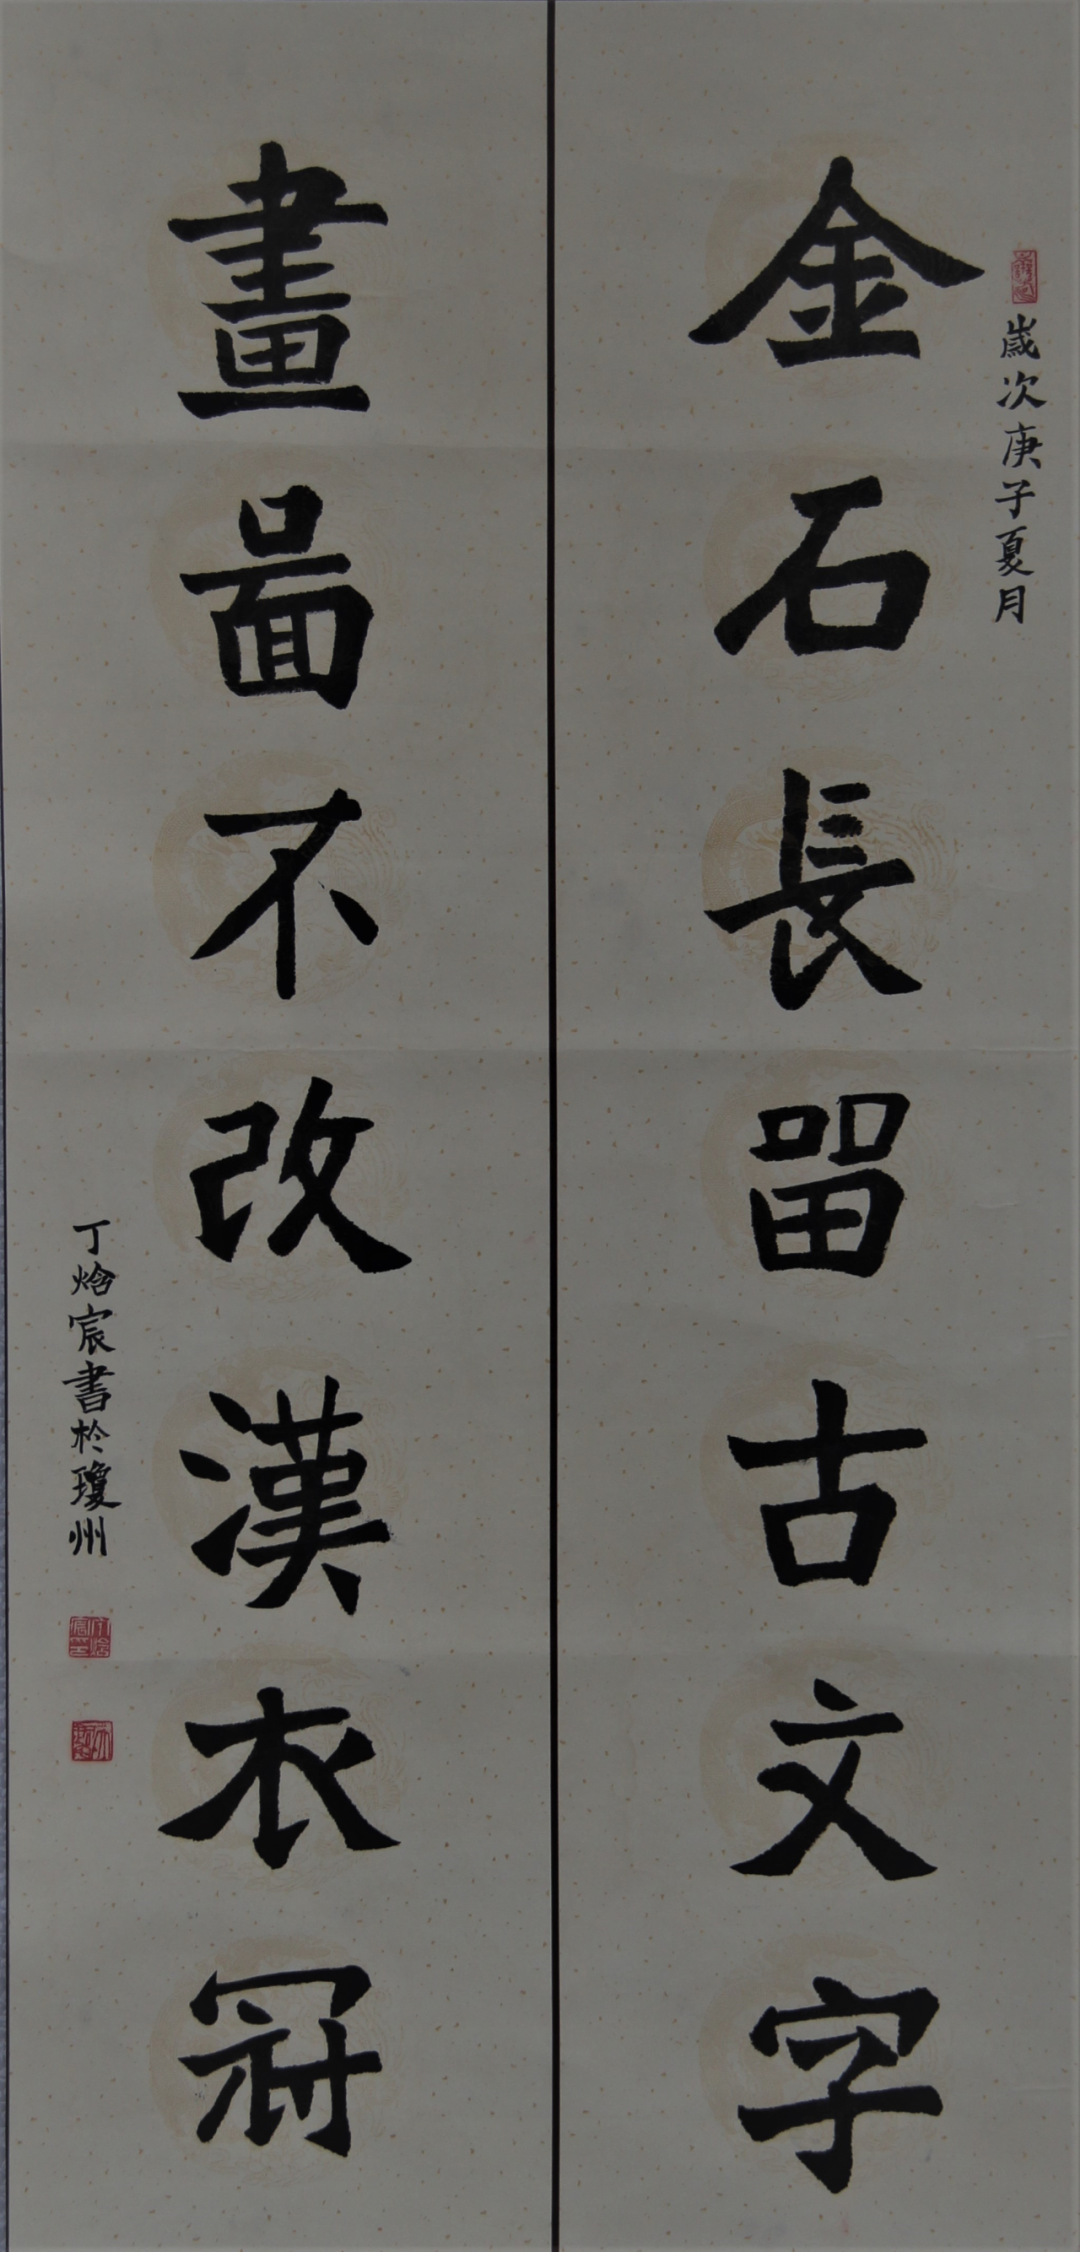 歲次庚子夏月
金石長留古文字
畫圖不改漢衣冠
丁焓宸書於瓊州